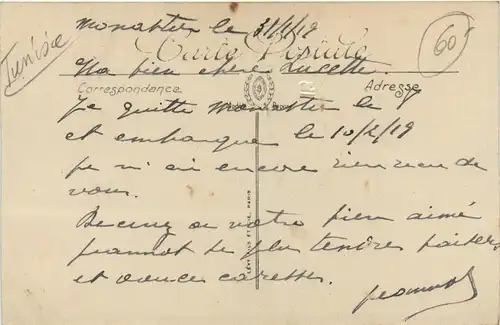 Tunisie
Monastir le 31/1/19
60
Carte Postale
Ma bien chère Lucette
Correspondance
Adresse
Je quitte Monastir le 7
et embarque le 10/2/19
je n'ai encore rien reçu de
vous.
Recevez de votre bien aimé
Jeannot de plus tendres baisers
et douces caresses.
Jeannot
LÉVY FILS ET CIE, PARIS